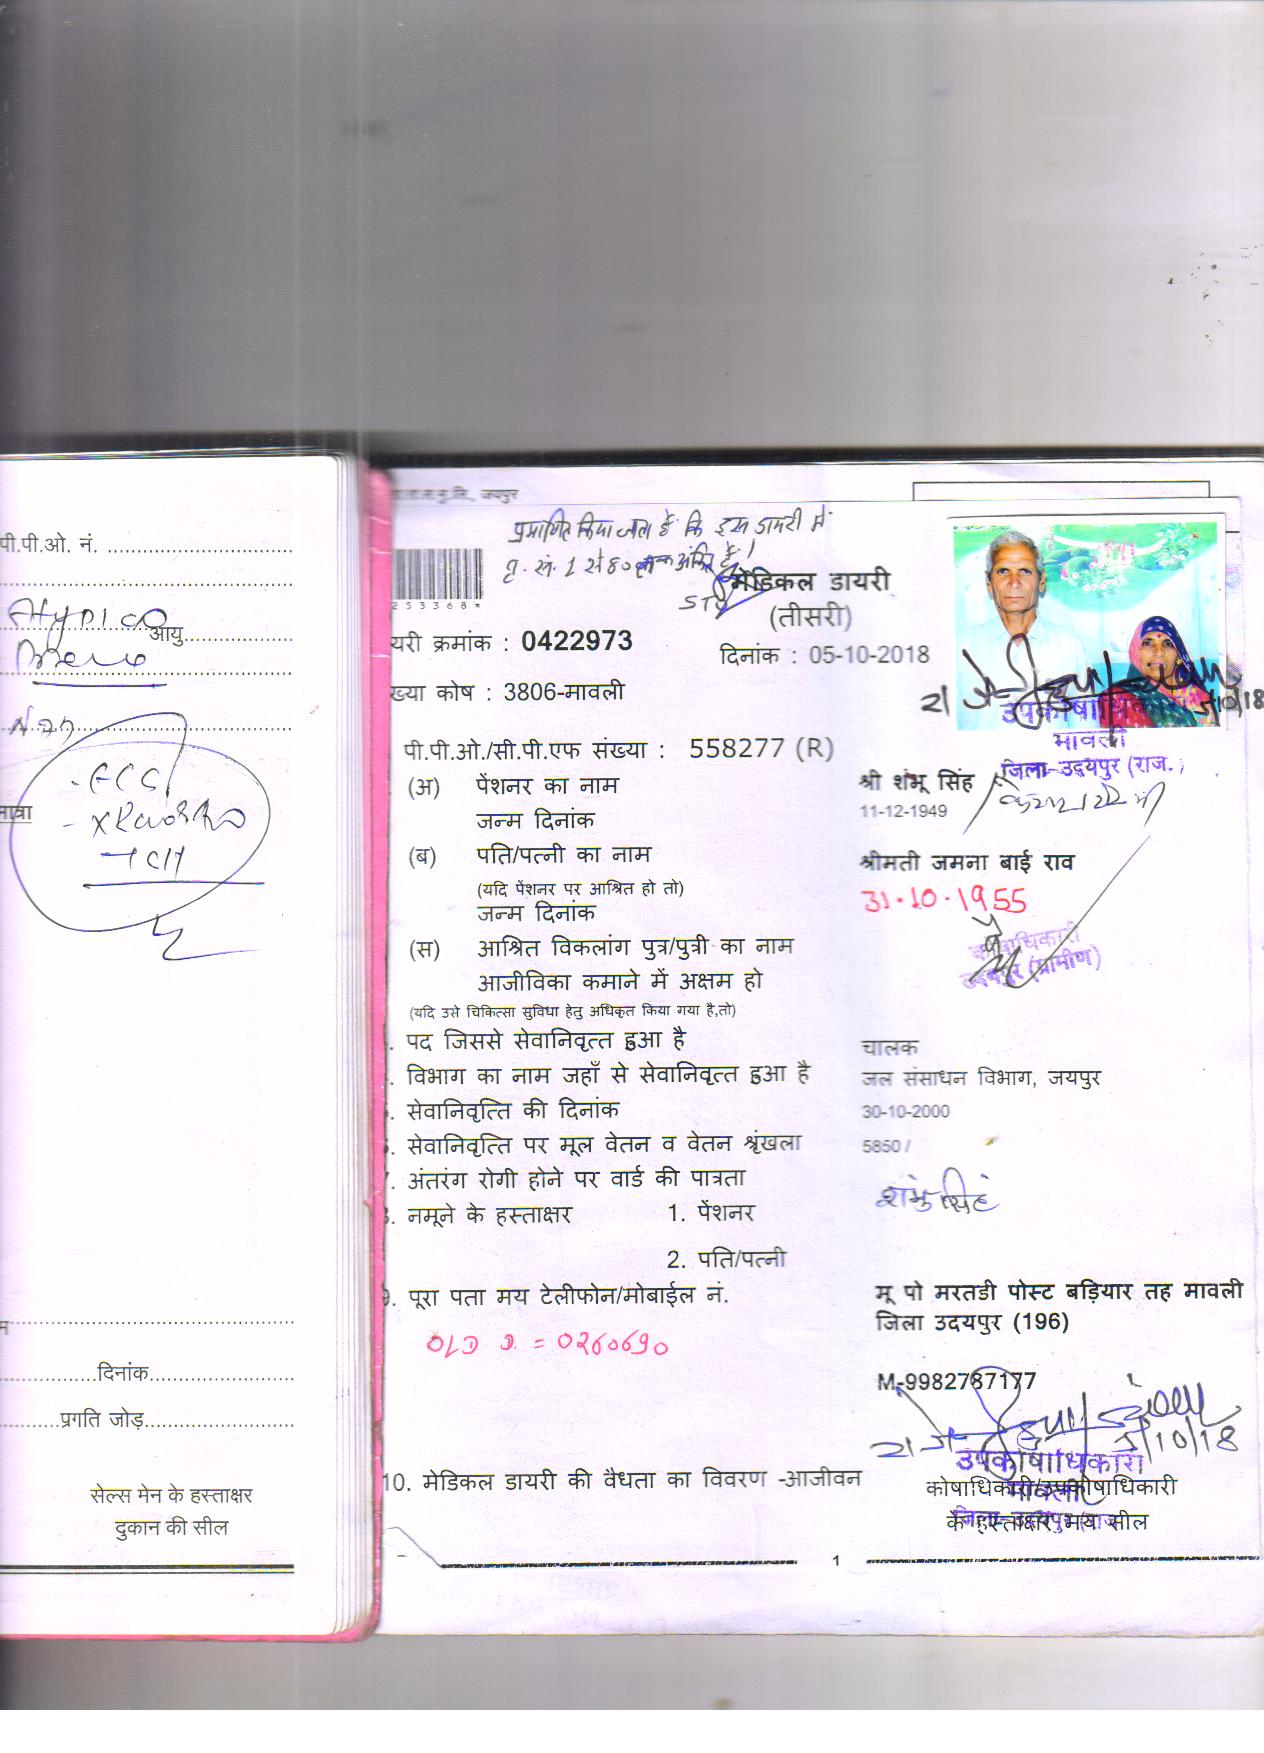 पी.पी.ओ. नं. ........................................
आयु........................
- ECG
दिनांक
प्रगति जोड़
सेल्स मेन के हस्ताक्षर
दुकान की सील
जयपुर
प्रमाणित किया जाता है कि इस डायरी में
पृ. सं. 1 से 80 तक अंकित है।
253368*
मेडिकल डायरी
(तीसरी)
यरी क्रमांक : 0422973
दिनांक : 05-10-2018
ख्या कोष : 3806-मावली
5/10/18
उपकोषाधिकारी
मावली
जिला-उदयपुर (राज.)
पी.पी.ओ./सी.पी.एफ संख्या : 558277 (R)
(अ) पेंशनर का नाम श्री शंभू सिंह
जन्म दिनांक 11-12-1949
(ब) पति/पत्नी का नाम श्रीमती जमना बाई राव
(यदि पेंशनर पर आश्रित हो तो)
जन्म दिनांक 31.10.1955
कोषाधिकारी
उदयपुर (ग्रामीण)
(स) आश्रित विकलांग पुत्र/पुत्री का नाम
आजीविका कमाने में अक्षम हो
(यदि उसे चिकित्सा सुविधा हेतु अधिकृत किया गया है,तो)
. पद जिससे सेवानिवृत्त हुआ है चालक
. विभाग का नाम जहाँ से सेवानिवृत्त हुआ है जल संसाधन विभाग, जयपुर
. सेवानिवृत्ति की दिनांक 30-10-2000
. सेवानिवृत्ति पर मूल वेतन व वेतन श्रृंखला 5850 /
. अंतरंग रोगी होने पर वार्ड की पात्रता
. नमूने के हस्ताक्षर 1. पेंशनर शंभु सिंह
2. पति/पत्नी
. पूरा पता मय टेलीफोन/मोबाईल नं. मू पो मरतडी पोस्ट बड़ियार तह मावली
जिला उदयपुर (196)
OLD D. = 0260690
M-9982787177
5/10/18
उपकोषाधिकारी
मावली
10. मेडिकल डायरी की वैधता का विवरण -आजीवन
कोषाधिकारी/उपकोषाधिकारी
के हस्ताक्षर मय सील
1